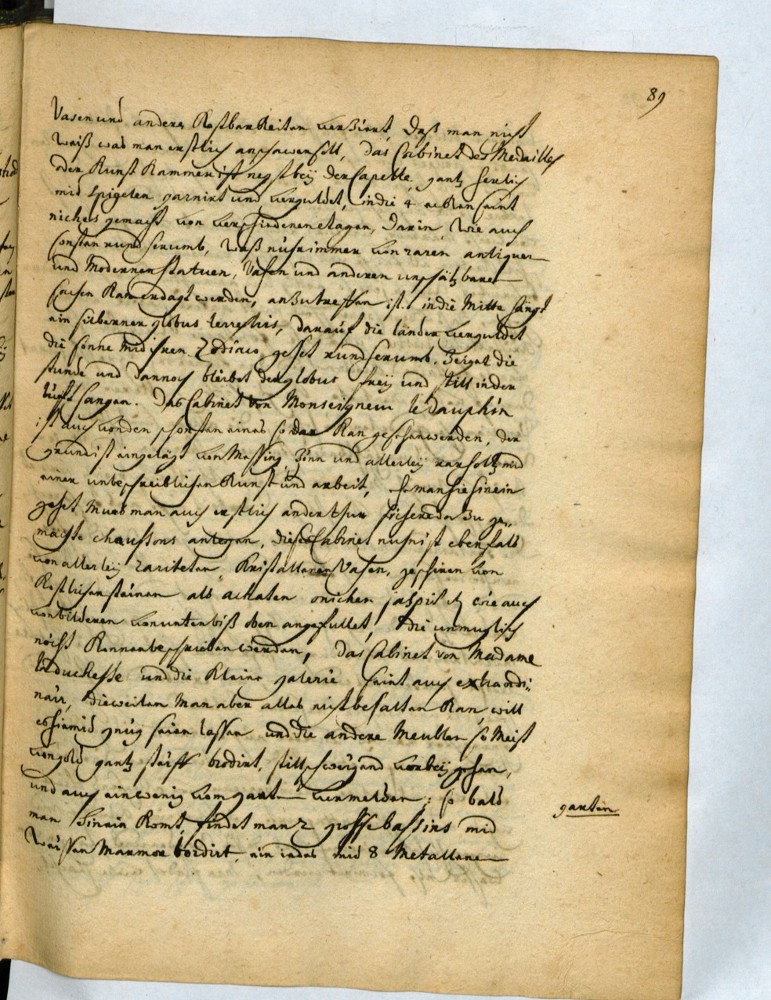 89
Vasen und andere Kostbarkeiten verziert, daß man nicht
weiß was man erstlich anschawen soll, das Cabinet des Medailles
oder Kunst Kammer ist negst beÿ der Capelle, gantz herlich
mit Spigelen garnirt und verguldet, in die 4 ecken seint
niches gemacht von verschiedenen etagen, darin wie auch
sonsten rund herumb, waß nuhr immer von raren antiquen
und Modernen statuen, Vasen und anderen unschätzbaren
sachen kan werden, anzutreffen ist. in die Mitte hängt
ein silbernen globus terrestris, darauf die länder verguldet
die sonne mid ihren Zodiaco gehet rund herumb. Zeiget die
stunde und dannoch bleibet der globus freÿ und still in der
luft hangen. Das Cabinet von Monseigneur le dauphin
ist auch von den schonsten eines so da kan gesehen werden, der
grund ist eingelägt von Messing, Zinn und allerleÿ
einer unbeschreiblichen Kunst und arbeit, ehe man hie hinein
gehet mues man auch erstlich andere zu ge,,
machte chaussons antegen, dieses Cabinet nuhn ist ebenfals
von allerleÿ rariteten Kristallenen Vasen, geschiren von
Kostlichen steinen als achaten onichen jaspis wie auch
von bilderen von unten biß oben angefullet, die unmuglich
nicht konnen beschrieben werden, das Cabinet von Madame
la duchesse und die kleine galerie seint auch extraordi,,
nair, dieweilen man aber alles nicht behalten kan, will
es hiemid gnüg seien lassen und die andere Meublen so meist
von gold gantz steiff brodirt, stillschweigend vorbeÿ gehen,
und auch ein wenig vom garten vermelden; so bald
garten
man hinein komt, findet man 2 grosse bassins mid
weissen Marmor bordirt, ein iedes mid 8 Metallene